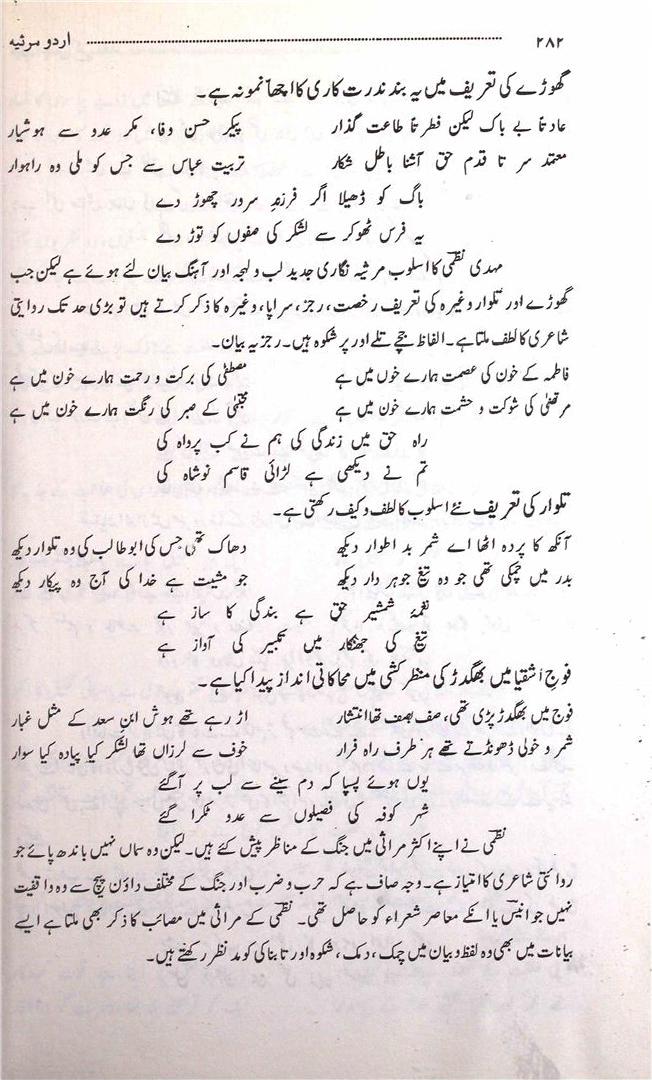 ۲۸۲ اردو مرثیہ
گھوڑے کی تعریف میں یہ بند ندرت کاری کا اچھا نمونہ ہے۔
عادتاً بے باک لیکن فطرتاً طاعت گذار پیکر حسن وفا، مکر عدو سے ہوشیار
معتمد سر تا قدم حق آشنا باطل شکار تربیت عباس سے جس کو ملی وہ راہوار
باگ کو ڈھیلا اگر فرزندِ سرور چھوڑ دے
یہ فرس ٹھوکر سے لشکر کی صفوں کو توڑ دے
مہدی نظمی کا اسلوب مرثیہ نگاری جدید لب و لہجہ اور آہنگ بیان لئے ہوئے ہے لیکن جب
گھوڑے اور تلوار وغیرہ کی تعریف رخصت، رجز، سراپا، وغیرہ کا ذکر کرتے ہیں تو بڑی حد تک روایتی
شاعری کا لطف ملتا ہے۔ الفاظ جچے تلے اور پر شکوہ ہیں۔ رجز یہ بیان۔
فاطمہ کے خون کی عصمت ہمارے خوں میں ہے مصطفیٰ کی برکت و رحمت ہمارے خون میں ہے
مرتضیٰ کی شوکت و حشمت ہمارے خون میں ہے مجتبیٰ کے صبر کی رنگت ہمارے خون میں ہے
راہ حق میں زندگی کی ہم نے کب پرواہ کی
تم نے دیکھی ہے لڑائی قاسم نوشاہ کی
تلوار کی تعریف نئے اسلوب کا لطف و کیف رکھتی ہے۔
آنکھ کا پردہ اٹھا اے شمر بد اطوار دیکھ دھاک تھی جس کی ابو طالب کی وہ تلوار دیکھ
بدر میں چمکی تھی جو وہ تیغ جوہر دار دیکھ جو مشیت ہے خدا کی آج وہ پیکار دیکھ
نغمۂ شمشیر حق ہے بندگی کا ساز ہے
تیغ کی جھنکار میں تکبیر کی آواز ہے
فوجِ اشقیا میں بھگدڑ کی منظر کشی میں محاکاتی انداز پیدا کیا ہے۔
فوج میں بھگدڑ پڑی تھی، صف بصف تھا انتشار اڑ رہے تھے ہوش ابنِ سعد کے مثل غبار
شمر و خولی ڈھونڈتے تھے ہر طرف راہ فرار خوف سے لرزاں تھا لشکر کیا پیادہ کیا سوار
یوں ہوئے پسپا کہ دم سینے سے لب پر آگئے
شہر کوفہ کی فصیلوں سے عدو ٹکرا گئے
نظمی نے اپنے اکثر مراثی میں جنگ کے مناظر پیش کئے ہیں۔ لیکن وہ سماں نہیں باندھ پائے جو
روائتی شاعری کا امتیاز ہے۔ وجہ صاف ہے کہ حرب و ضرب اور جنگ کے مختلف داؤن پیچ سے وہ واقفیت
نہیں جو انیس یا انکے معاصر شعراء کو حاصل تھی۔ نظمی کے مراثی میں مصائب کا ذکر بھی ملتا ہے ایسے
بیانات میں بھی وہ لفظ و بیان میں چمک، دمک، شکوہ اور تابناکی کو مد نظر رکھتے ہیں۔